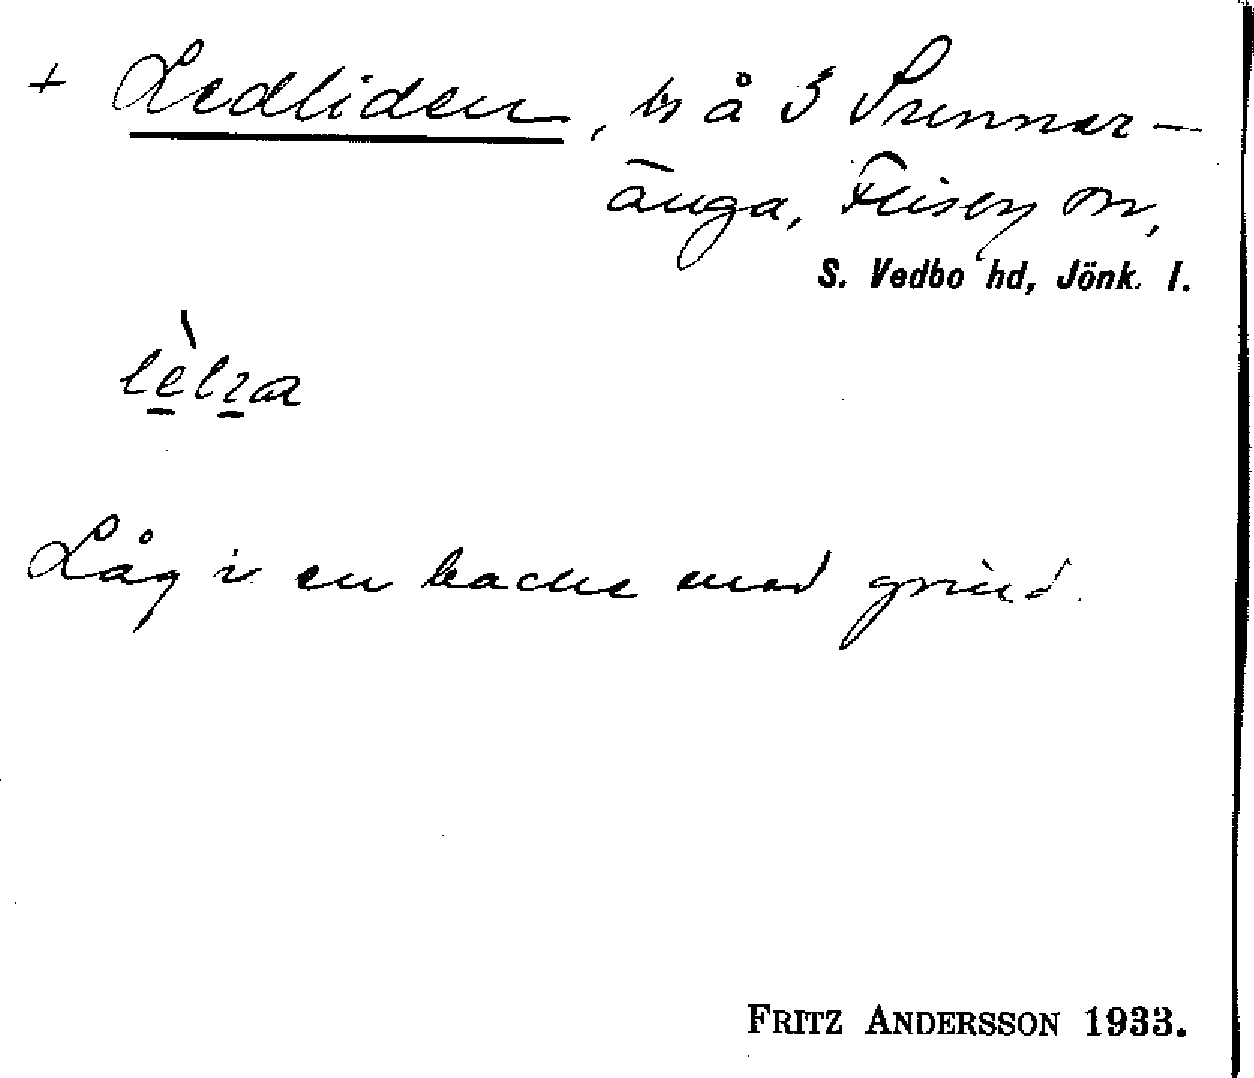 + Ledliden, ls å 3 Prennar-
änga, Flisby sn,
S. Vedbo hd, Jönk. l.
Låg i en backe med grind.
FRITZ ANDERSSON 1933.